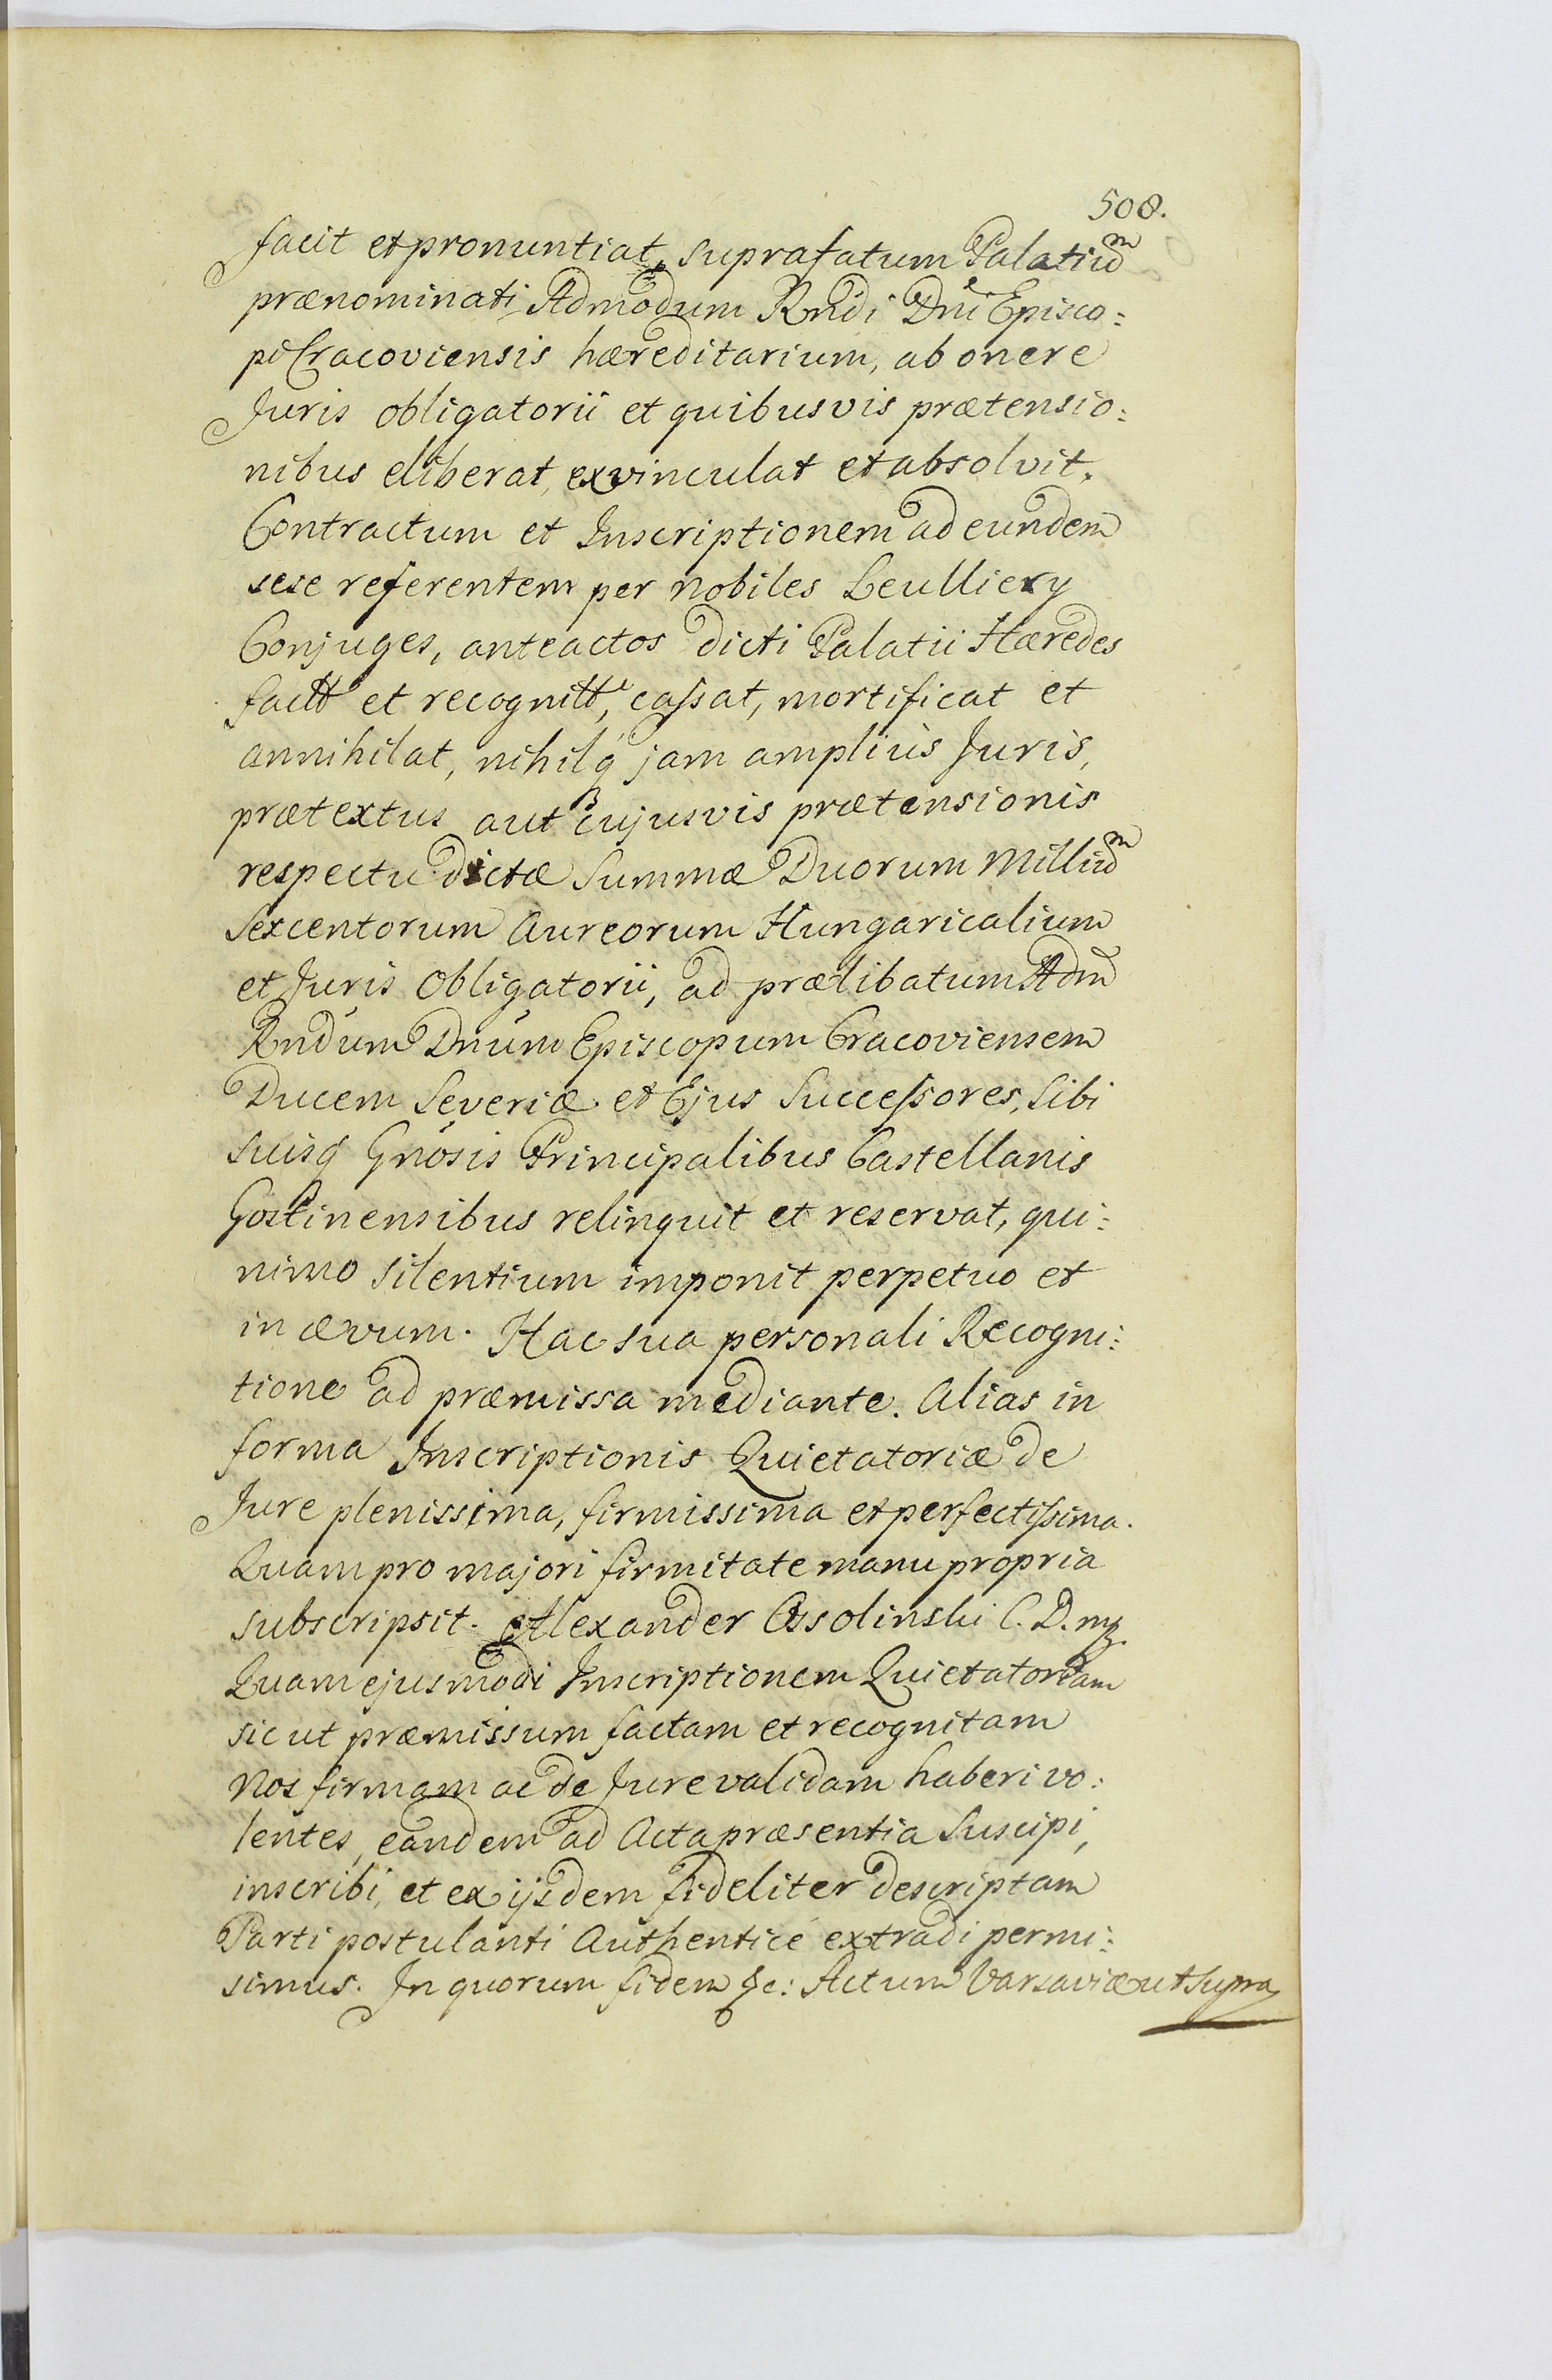 508.
facit et pronuntiat, suprafatum Palatiũ
prænominati Admodum Rndi Dni Episco:
pi Cracoviensis hæreditarium, ab onere
Juris obligatorii et quibusvis prætensio:
nibus eliberat, exvinculat et absolvit.
Contractum et Inscriptionem ad eundem
sese referentem per nobiles Leulliery
Conjuges, anteactos dicti Palatii Hæredes
factt et recognitt, cassat, mortificat et
annihilat, nihilq jam amplius Juris,
prætextus aut cujusvis prætensionis
respectu dictæ Summæ Duorum Milliũ
Sexcentorum Aureorum Hungaricalium
et Juris Obligatorii, ad prælibatum Adm
Rndum Dnum Episcopum Cracoviensem
Ducem Severiæ et Ejus Successores, sibi
suisq Gnosis Principalibus Castellanis
Gostinensibus relinquit et reservat, qui:
nimo silentium imponit perpetuo et
in ævum. Hac sua personali Recogni:
tione ad præmissa mediante. Alias in
forma Inscriptionis Quietatoriæ de
Jure plenissima, firmissima et perfectissima.
Quam pro majori firmitate manu propria
subscripsit. Alexander Ossolinski C. D. mp.
Quam ejusmodi Inscriptionem Quietatoriam
sic ut præmissum factam et recognitam
Nos firmam ac de Jure validam haberi vo:
lentes, eandem ad Acta præsentia Suscipi,
inscribi, et ex ijsdem fideliter descriptam
Parti postulanti Authentice extradi permi:
simus. In quorum fidem &c: Actum Varsaviæ ut supra